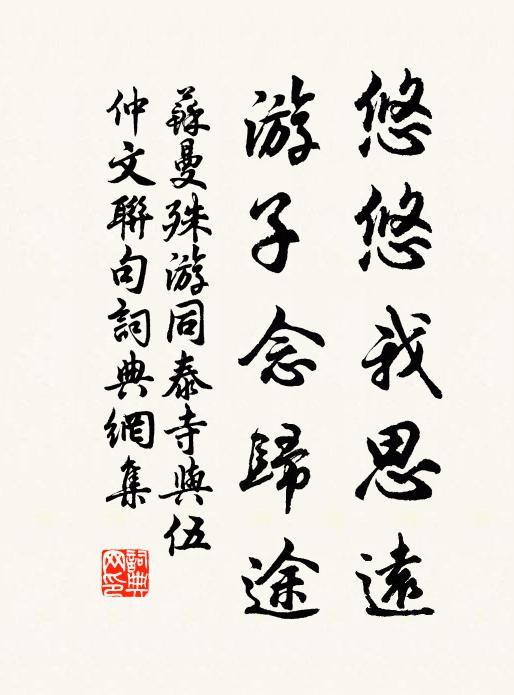 悠悠我思遠
游子念歸途
蘇曼殊游同泰寺與伍
仲文聯句詞典網集
詞典
网印